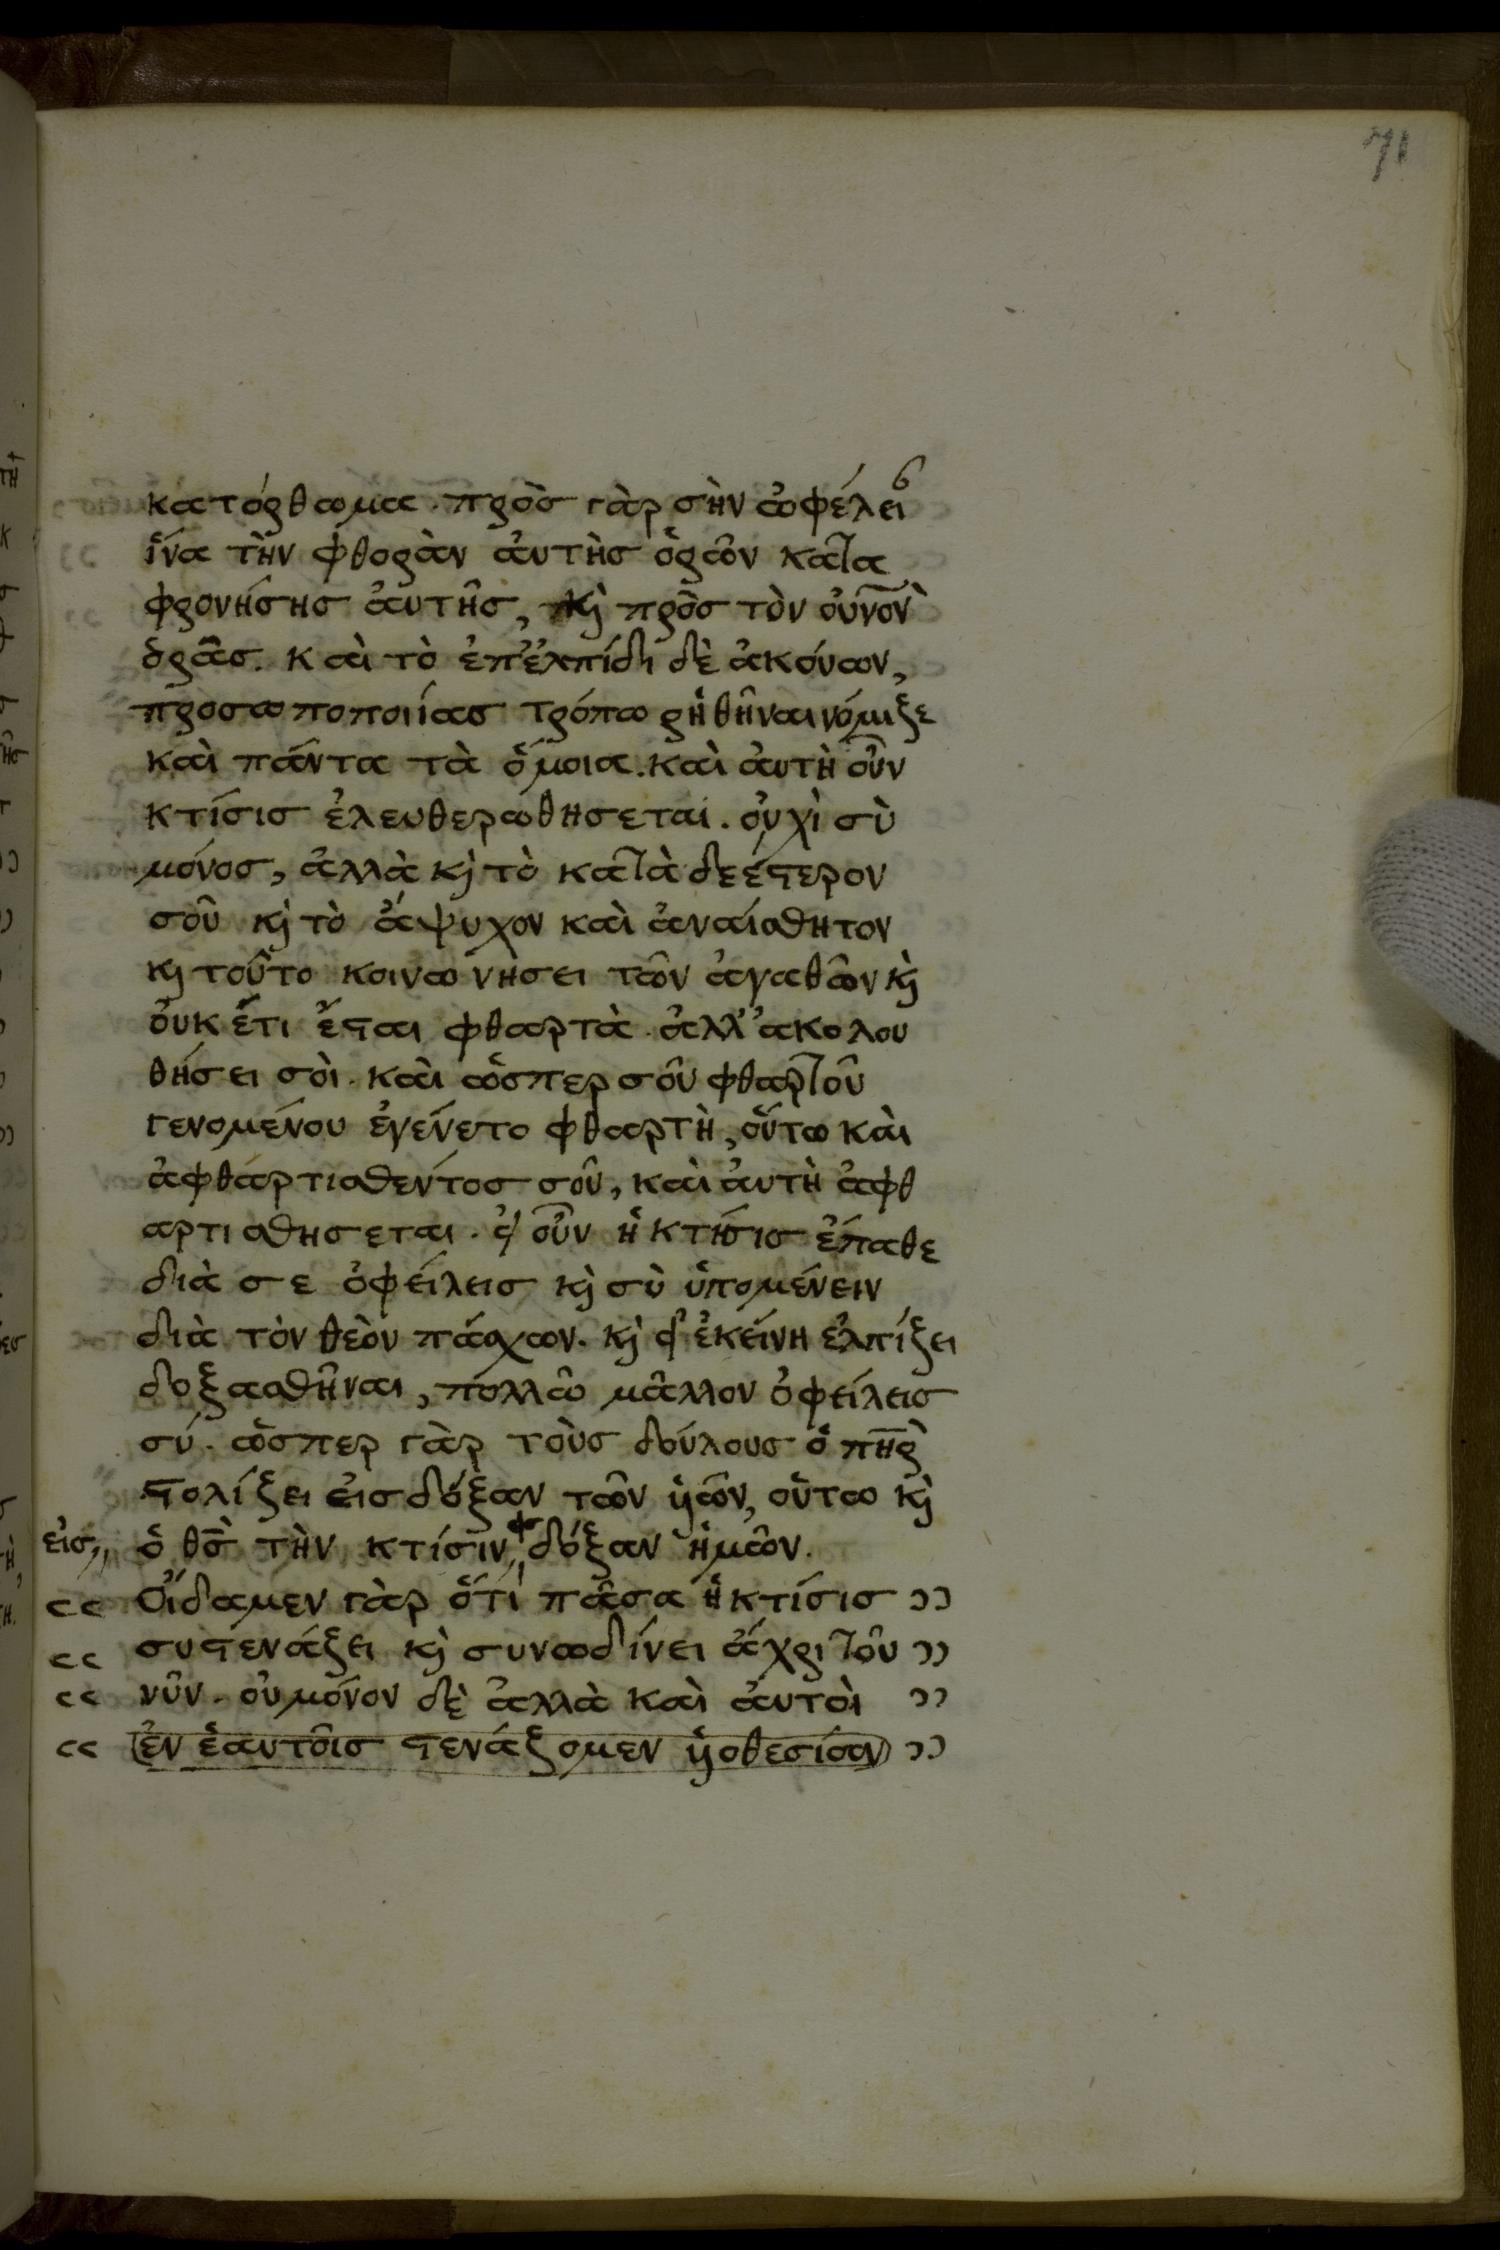 71
κατόρθωμα. πρὸς γὰρ σὴν ὠφέλει
ἵνα τὴν φθορὰν ἀυτῆς ὁρῶν κατα
φρονήσης ἀυτῆς, κ̀ πρὸς τὸν οὐνὸν
ὁρᾶς. καὶ τὸ ἐπ' ἐλπίδι δὲ ἀκούων,
προσωποποιίας τρόπω ῥηθῆναι νόμιζε
καὶ πάντα τὰ ὅμοια. καὶ ἀυτὴ οὖν
κτίσις ἐλευθερωθησεται. οὐχὶ σὺ
μόνος, ἀλλὰ κ̀ τὸ καταδεέστερον
σοῦ κ̀ τὸ ἄψυχον καὶ ἀναίσθητον
κ̀ τοῦτο κοινωνήσει τῶν ἀγαθῶν κ̀
οὐκ ἔτι ἔσται φθαρτὰ. ἀλλ' ἀκολου
θήσει σοὶ. καὶ ὥσπερ σοῦ φθαρτοῦ
γενομένου ἐγένετο φθαρτὴ, οὕτω καὶ
ἀφθαρτισθέντος σοῦ, καὶ ἀυτὴ ἀφθ
αρτισθησεται. εἰ οὖν ἡ κτίσις ἔπαθε
διὰ σε ὀφείλεις κ̀ σὺ ὑπομένειν
διὰ τὸν θεὸν πάσχων. κ̀ εἰ ἐκείνη ἐλπίζει
δοξασθῆναι, πολλῶ μᾶλλον ὀφείλεις
σύ. ὥσπερ γὰρ τοὺς δούλους ὁ πηρ
στολίζει εἰς δόξαν τῶν ὑιῶν, οὕτω κ̀
εἰς,, ὁ θς τὴν κτίσιν δόξαν ἡμῶν.
Οἴδαμεν γὰρ ὅτι πᾶσα ἡ κτίσις
συστενάζει κ̀ συνωδίνει ἄχρι τοῦ
νῦν. οὐ μόνον δὲ ἀλλὰ καὶ ἀυτοὶ
(ἐν ἑαυτοῖς στενάζομεν ὑιοθεσίαν)